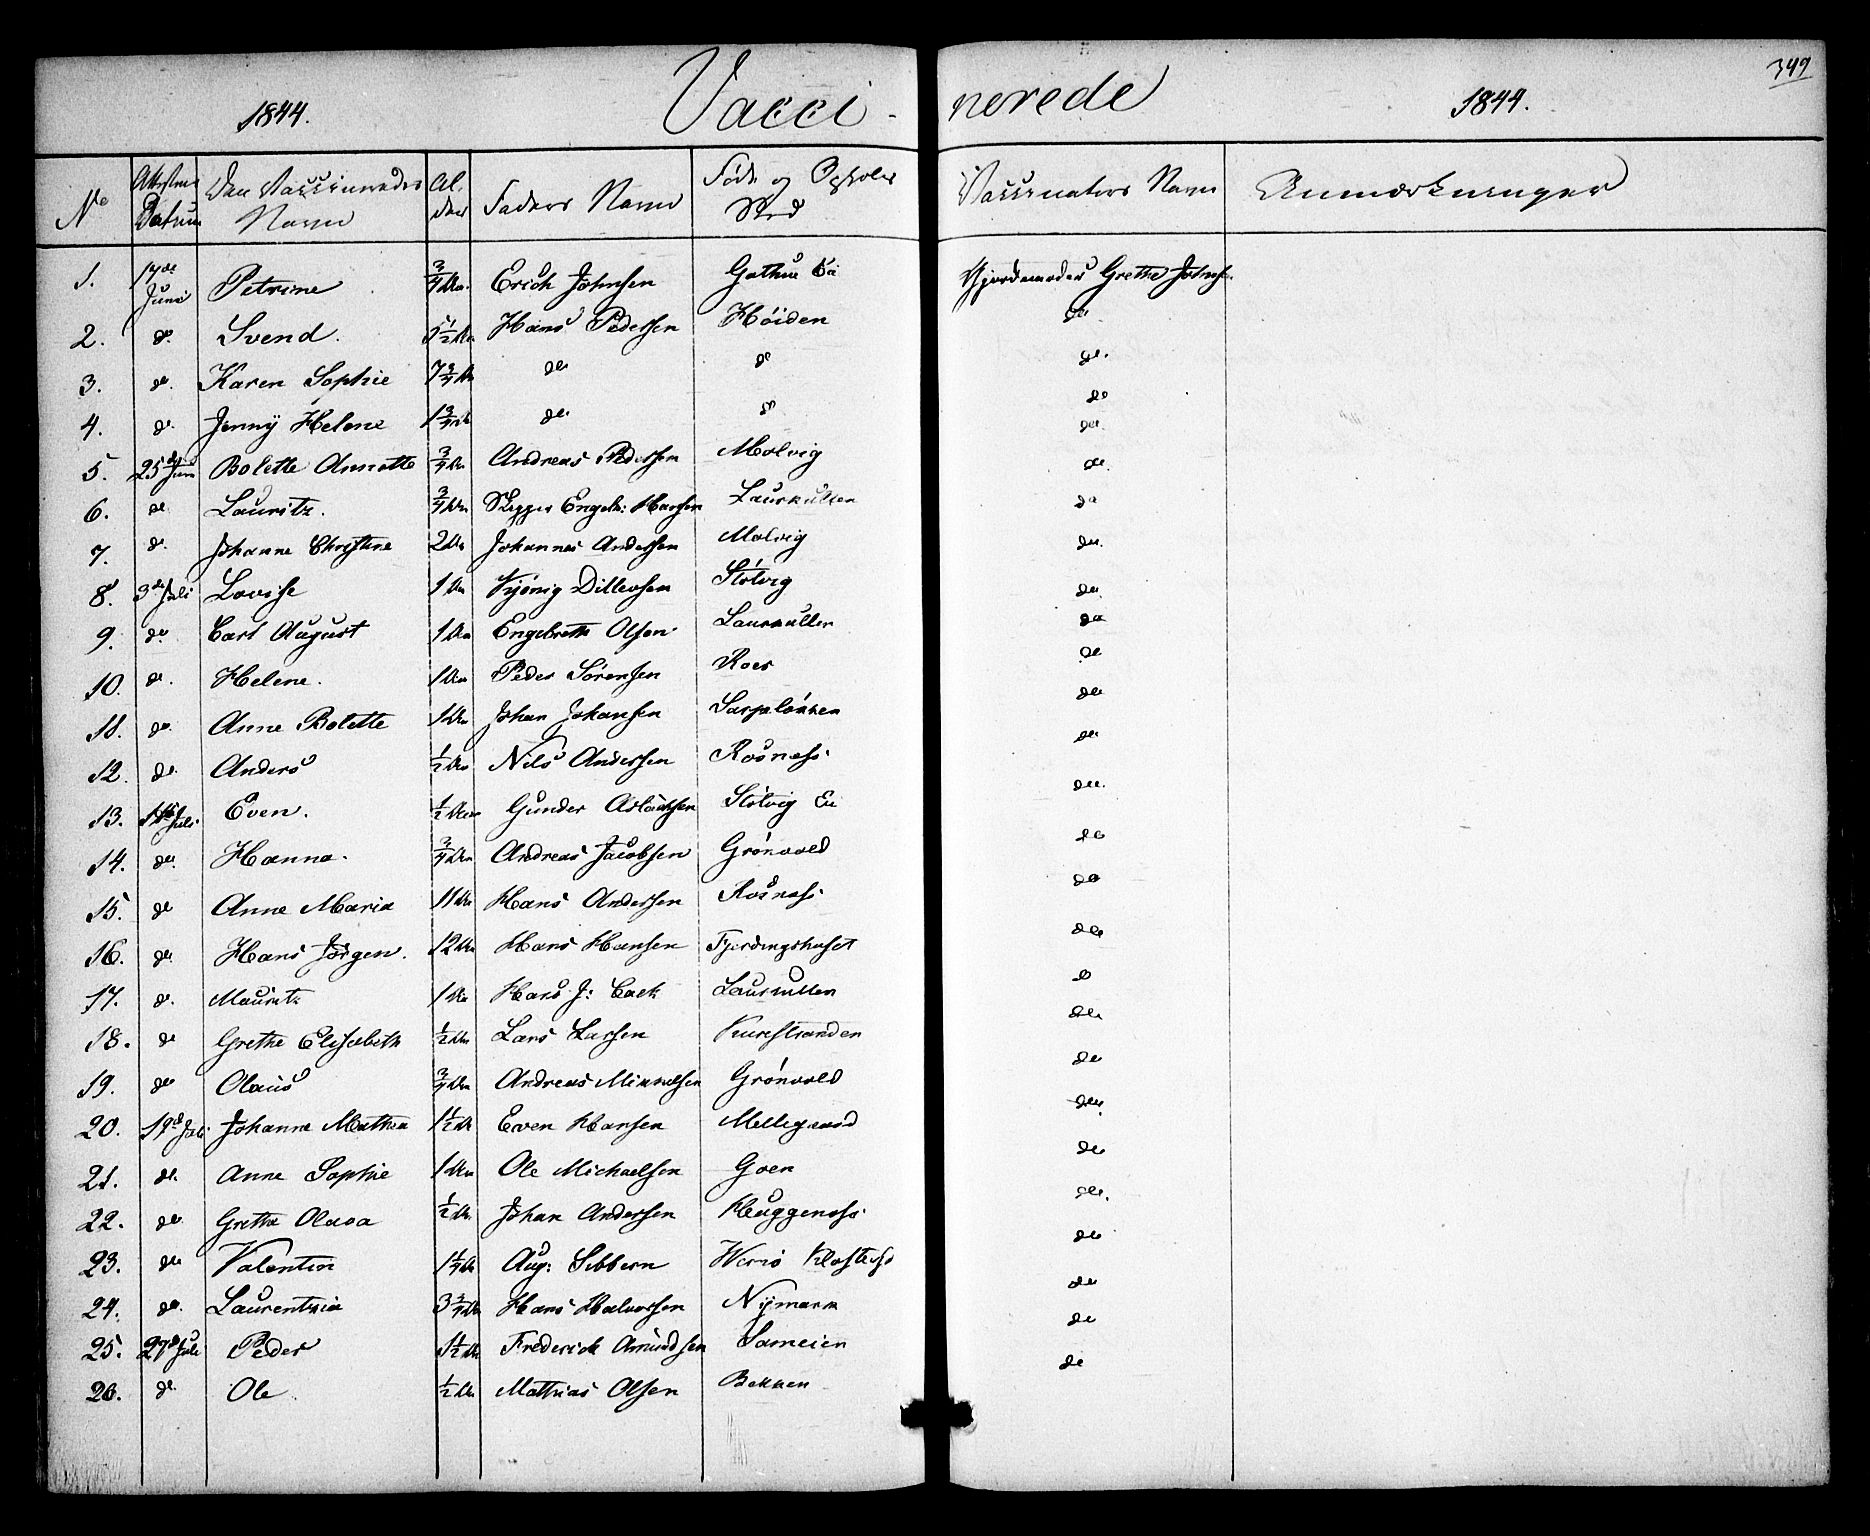 349
1844. Vacci- nerede 1844.
No Attestens Datum Den Vaccineredes Navn Alder Faders Navn Føde og Opholds Sted Vaccinators Navn Anmærkninger
1. 17de Juni Petrine 3/4 Aar Erich Johnsen Gjordemoder Grethe Johns.
2. do. Svend. 1/2 Aar Hans Pedersen Høiden do
3. do. Karen Sophie 7 3/4 Aar do do do.
4. do. Jenny Helene 1 3/4 Aar do do do
5. 25de Juni Bolette Annette 3/4 Aar Andreas Pedersen Molvig do.
6. do. Lauritz. 3/4 Aar Skipper Engelb: Hansen Laurkullen do.
7. do. Johanne Christine 2 Aar Johannes Andersen Molvig do
8. 3de Juli Lovise 1 Aar Kjönig Ditlevsen Støtvig do.
9. do. Carl August 1 Aar Engebreth Olsen Laurkullen do.
10. do. Helene. 1 Aar Peder Sörensen Roer do
11. do. Anne Bolette 1 Aar Johan Johansen Sarpelökken do
12. do. Anders 1/2 Aar Nils Andersen Rosness do
13. 11te Juli Even. 1/2 Aar Gunder Aslaksen Støtvig Ei do.
14. do. Hanna. 3/4 Aar Andreas Jacobsen Grönvold do.
15. do Anne Maria 11 Aar Hans Andersen Rosness do
16. do. Hans Jörgen. 12 Aar Hans Hansen Fjerdingshuset do
17. do. Mauritz 1 Aar Hans J: Laurkullen do
18. do Grethe Elisabeth 1/2 Aar Lars Larsen Kurestranden do
19. do Olaus 3/4 Aar Andreas Mikkelsen Grönvold do
20. 19de Juli Johanne Mathea 1 1/2 Aar Even Hansen do
21. do. Anne Sophie 1 Aar Ole Michaelsen Goen do.
22. do Grethe Olava 1/2 Aar Johan Andersen Huggeness do
23. do Valentin 1 1/4 Aar Aug: Sibbern Værnö Kloster do.
24. do. Laurentzia 3 3/4 Aar Hans Halvorsen Nÿmark do
25. 27de Juli Peder 1 1/2 Aar Frederick Amundsen Sameien do
26. do. Ole 1/2 Aar Mathias Olsen Bakken do